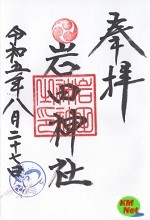 奉拝
岩田神社
令和五年八月二十七日
KM
Net